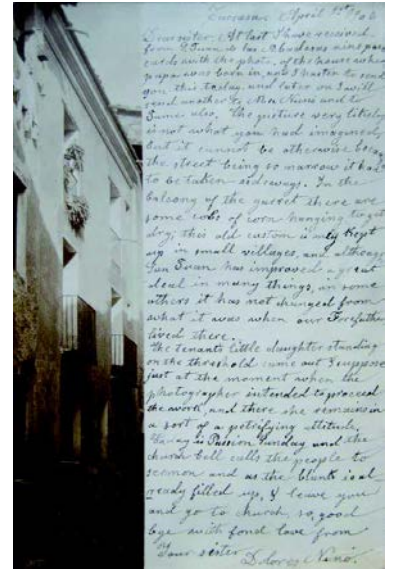 Tarrasa, April 1st 906
Dear sister, At last I have received
from S. Juan de las Abadesas nine post
cards with the photo. of the house where
papa was born in, and I hasten to send
you this today, and later on I will
send another to Mrs. Nuni and to
same also. The picture very likely
is not what you had imagined,
but it cannot be otherwise becau
the street being so narrow it has
to be taken sideways. In the
balcony of the garret there are
some cobs of corn hanging to get
dry; this old custom is only kept
up in small villages, and although
San Juan has improved a great
deal in many things, in some
others it has not changed from
what it was when our Forefathers
lived there.
The tenants little daughter standing
on the threshold came out I suppose
just at the moment when the
photographer intended to proceed
the work, and there she remains in
a sort of a petrifying attitude.
To-day is Passion Sunday and the
church bell calls the people to
sermon and as the blank is al-
ready filled up, I leave you
and go to church, so, good
bye with fond love from
Your sister
Dolores Ninó.